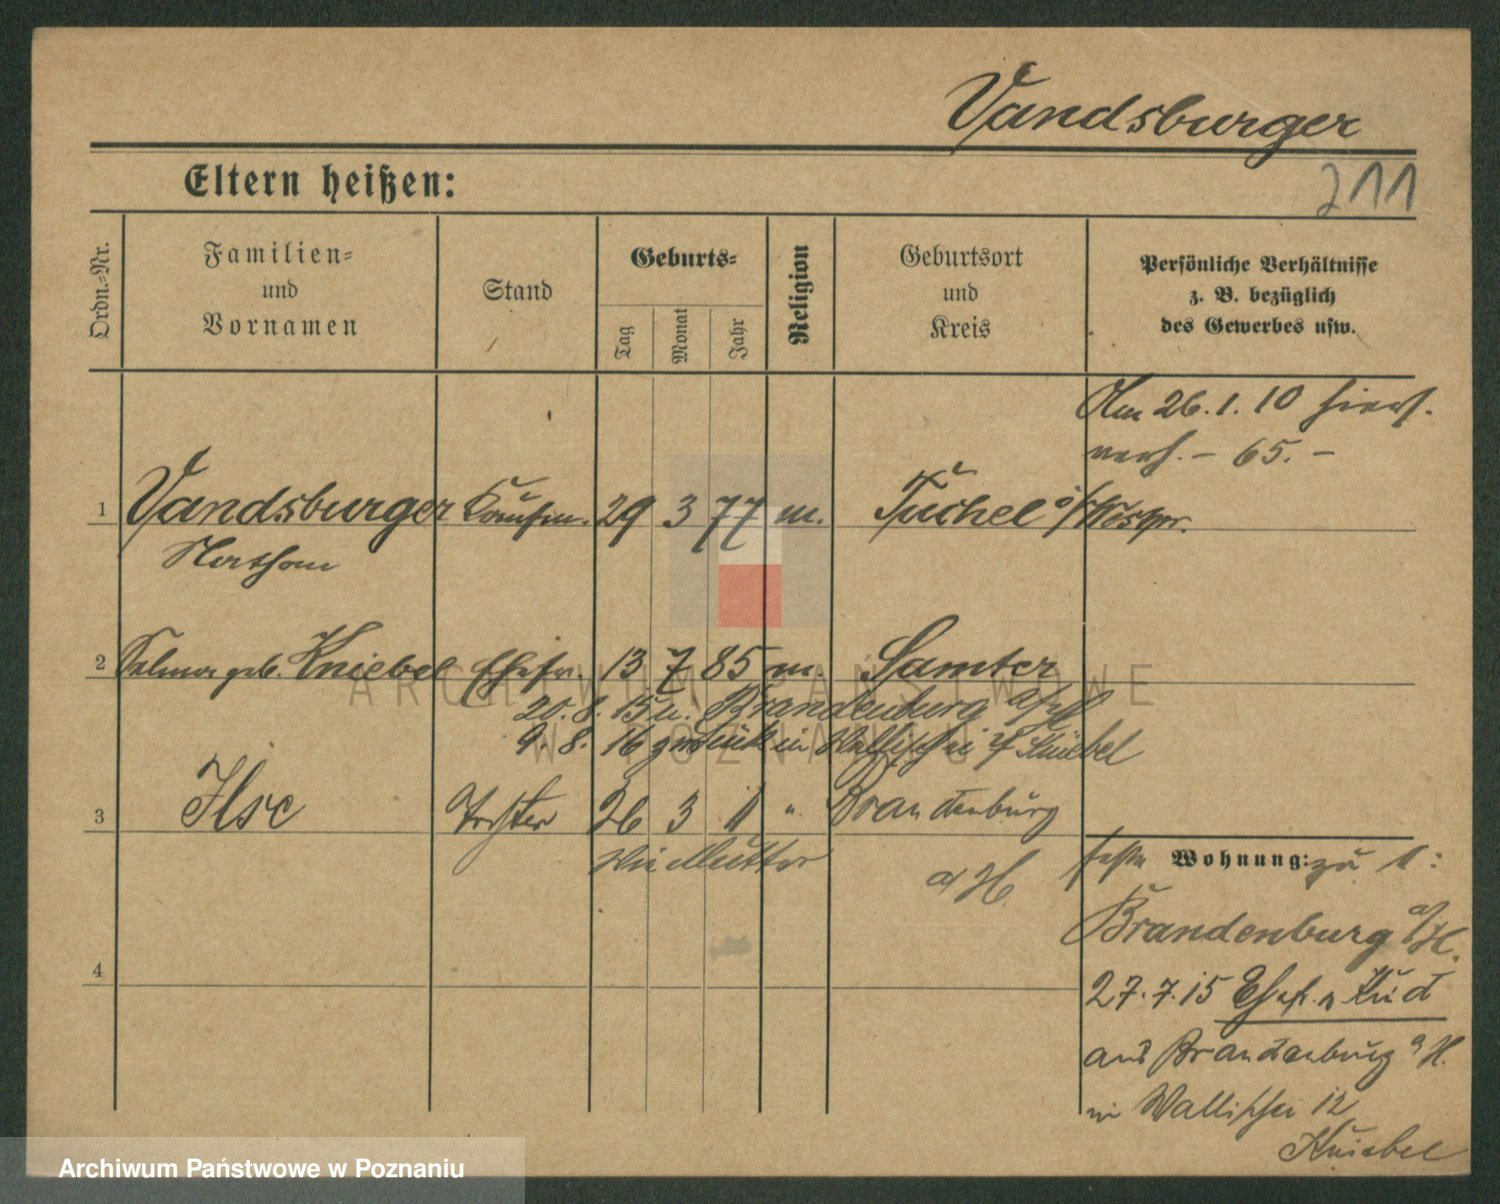 Vandsburger
211
Eltern heißen:
Ordn.-Nr.
Familien- und Vornamen
Stand
Geburts-
Tag
Monat
Jahr
Religion
Geburtsort und Kreis
Persönliche Verhältnisse z. B. bezüglich des Gewerbes usw.
Am 26.1.10 hiers.
verh. – 65. –
1 Vandsburger Kaufm. 29 3 77 m. Tuchel i/Westpr.
Nathan
2 Selma geb. Kniebel Ehefr. 13 7 85 m. Samter
20. 8. 15 n. Brandenburg a/H
9. 8. 16 zurück in Wallischei b/ Kniebel
3 Ilse Tochter 26 3 11 " Brandenburg
wie Mutter
a/H
Wohnung: zu 1:
Brandenburg a/H.
27.7.15 Ehefr. u Kind
aus Brandenburg a H.
in Wallischei 12
Kniebel
4
ARCHIWUM PAŃSTWOWE
W POZNANIU
Archiwum Państwowe w Poznaniu